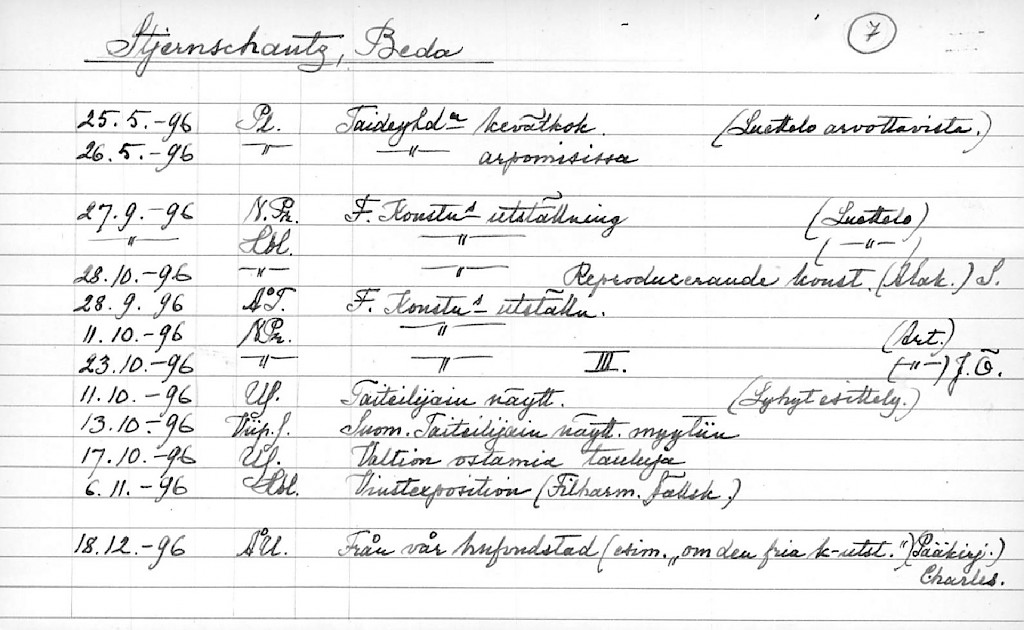 Stjernschantz, Beda
7
25.5.-96 Pl. Taideyhd:n kevätkok. (Luettelo arvottavista.)
26.5.-96 -"- -"- arpomisissa
27.9.-96 N.Pr. F. Konstn:s utställning (Luettelo)
-"- Hbl. -"- (-"-)
28.10.-96 -"- -"- Reproducerande konst. (Alak.) S.
28.9.96 ÅT. F. Konstn:s utställn.
11.10.-96 N.Pr. -"- (Art.)
23.10.-96 -"- -"- III. (-"-) J.Ö.
11.10.-96 Uf. Taiteilijain näytt. (Lyhyt esittely.)
13.10.-96 Viip.s. Suom. Taiteilijain näytt. myytiin
17.10.-96 Uf. Valtion ostamia tauluja
6.11.-96 Hbl. Vinstexposition (Filharm. Sällsk.)
18.12.-96 ÅU. Från vår hufvudstad (esim. „om den fria k-utst.") (Pääkirj.)
Charles.